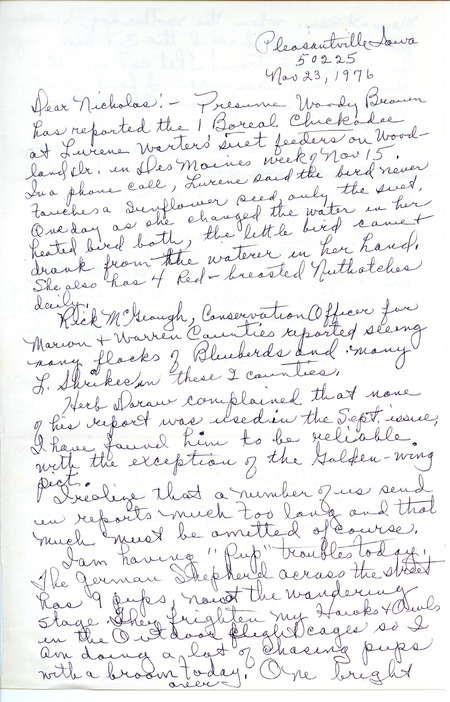 Pleasantville, Iowa
50225
Nov 23, 1976
Dear Nicholas:- Presume Woody Brown
has reported the 1 Boreal Chickadee
at Lurene Warters' suet feeders on Wood-
land Dr. in Des Moines week of Nov 15.
In a phone call, Lurene said the bird never
touches a sunflower seed, only the suet.
One day as she changed the water in her
heated bird bath, the little bird came &
drank from the waterer in her hand.
She also has 4 Red-breasted Nuthatches
daily.
Rick McGeough, Conservation Officer for
Marion & Warren Counties reported seeing
many flocks of Bluebirds and many
L. Shrikes in these 2 counties.
Herb Dorow complained that none
of his report was used in the Sept. issue,
I have found him to be reliable.
with the exception of the Golden-wing
pict.
I realize that a number of us send
in reports much too long and that
much must be omitted of course.
I am having "Pup" troubles today.
The German Shepherd across the street
has 9 pups, now at the wandering
stage. They frighten my Hawks & Owls
in the Outdoor flight cages so I
am doing a lot of chasing pups
with a broom today. One bright